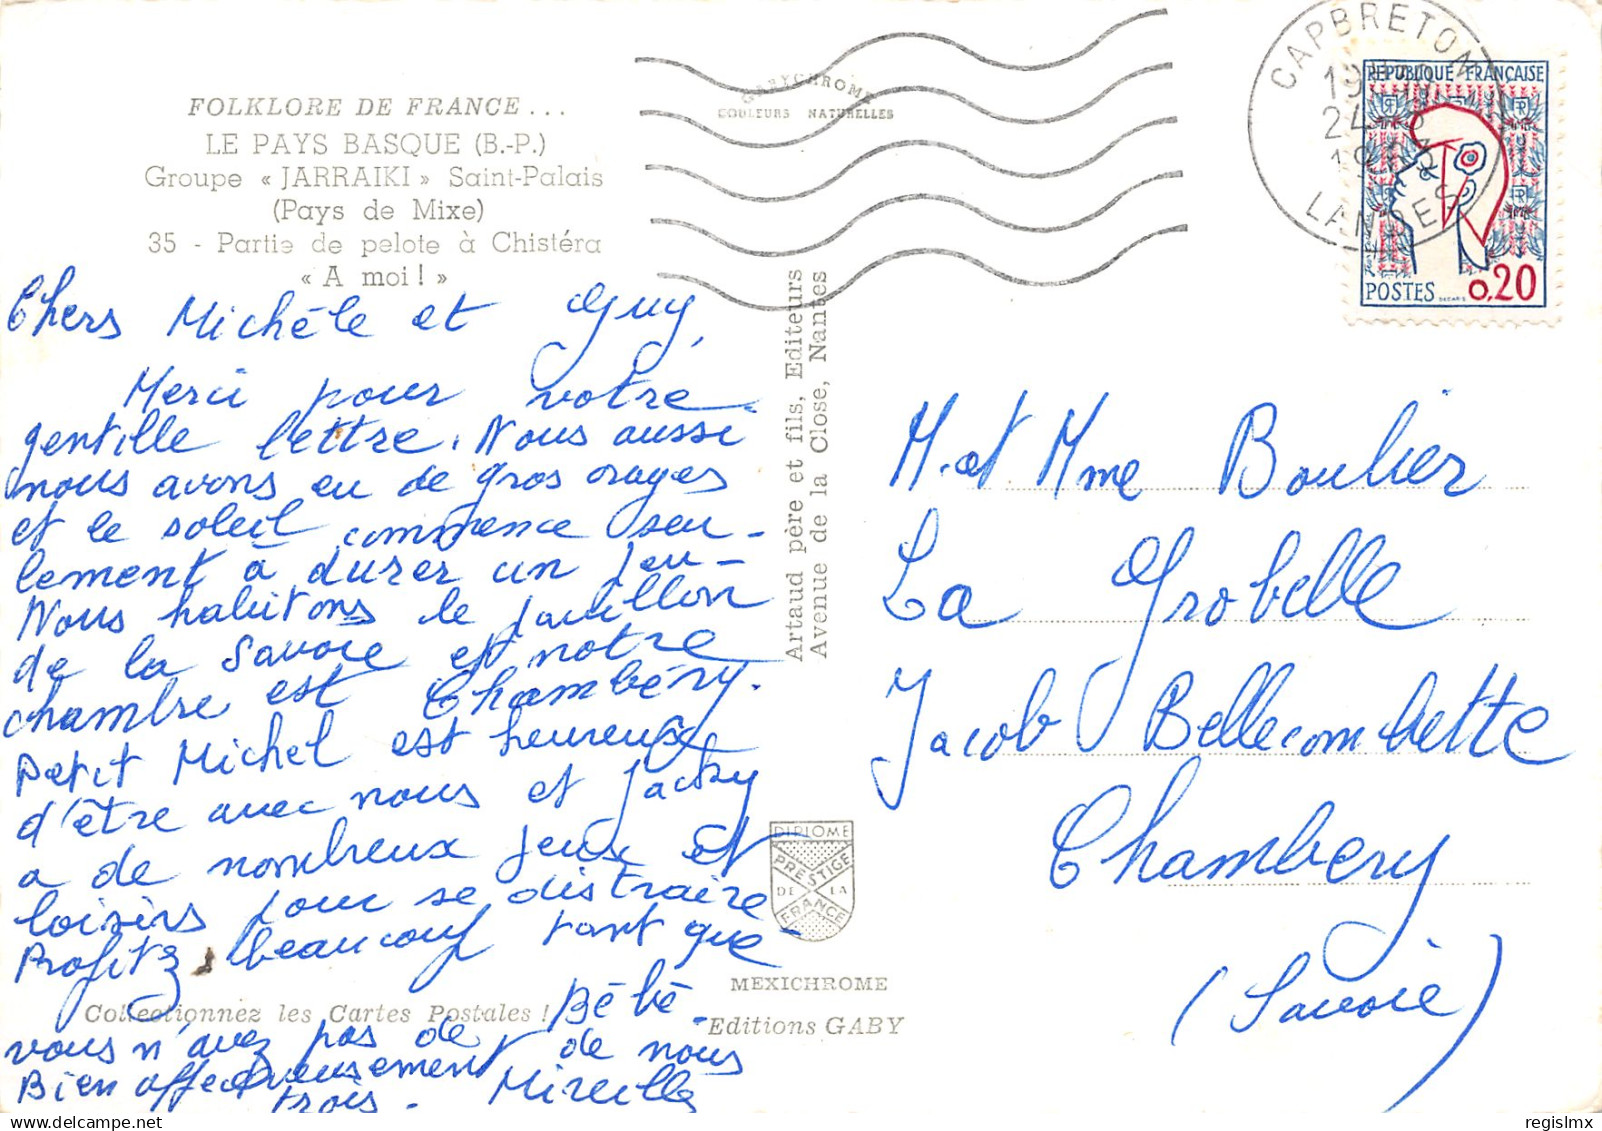 FOLKLORE DE FRANCE...
LE PAYS BASQUE (B.-P.)
Groupe « JARRAIKI » Saint-Palais
(Pays de Mixe)
35 - Partie de pelote à Chistéra
« A moi ! »
GABYCHROME
COULEURS NATURELLES
CAPBRETON
LANDES
REPUBLIQUE FRANÇAISE
POSTES 0,20
Chers Michèle et Guy,
Merci pour votre
gentille lettre. Nous aussi
nous avons eu de gros orages
et le soleil commence seu-
lement à durer un peu-
Nous habitons le pavillon
de la Savoie et notre
chambre est Chambéry.
Petit Michel est heureux
d'être avec nous et Jacky
a de nombreux jeux et
loisirs pour se distraire
Profitez beaucoup tant que
vous n'avez pas de Bébé.
Bien affectueusement de nous
trois. Mireille
Artaud père et fils, Editeurs
Avenue de la Close, Nantes
DIPLOME
PRESTIGE
DE LA
FRANCE
MEXICHROME
Editions GABY
Collectionnez les Cartes Postales !
M. et Mme Boulier
La Grobelle
Jacob Bellecombette
Chambery
(Savoie)
Delcampe.net
regislmx